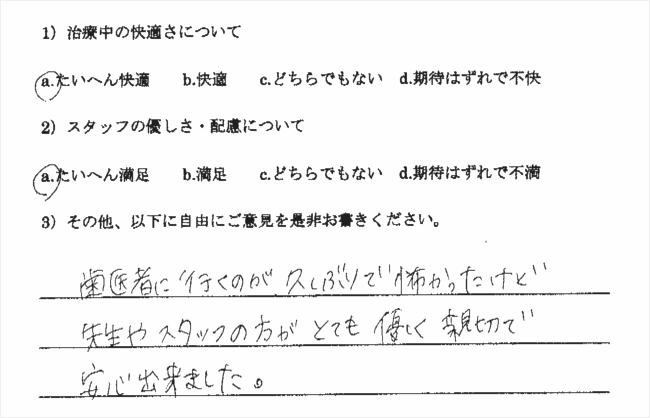 1）治療中の快適さについて
a.たいへん快適 b.快適 c.どちらでもない d.期待はずれで不快
2）スタッフの優しさ・配慮について
a.たいへん満足 b.満足 c.どちらでもない d.期待はずれで不満
3）その他、以下に自由にご意見を是非お書きください。
歯医者に行くのが久しぶりで怖かったけど
先生やスタッフの方がとても優しく親切で
安心出来ました。